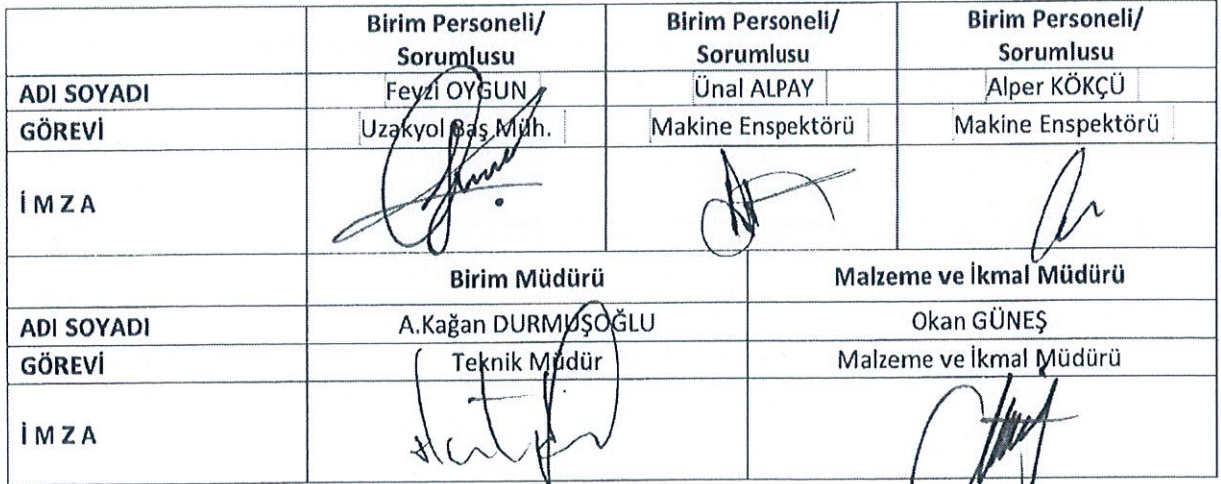 Birim Personeli/ Birim Personeli/ Birim Personeli/
Sorumlusu Sorumlusu Sorumlusu
ADI SOYADI Feyzi OYGUN Ünal ALPAY Alper KÖKÇÜ
GÖREVİ Uzakyol Baş Müh. Makine Enspektörü Makine Enspektörü
İ M Z A
Birim Müdürü Malzeme ve İkmal Müdürü
ADI SOYADI A.Kağan DURMUŞOĞLU Okan GÜNEŞ
GÖREVİ Teknik Müdür Malzeme ve İkmal Müdürü
İ M Z A